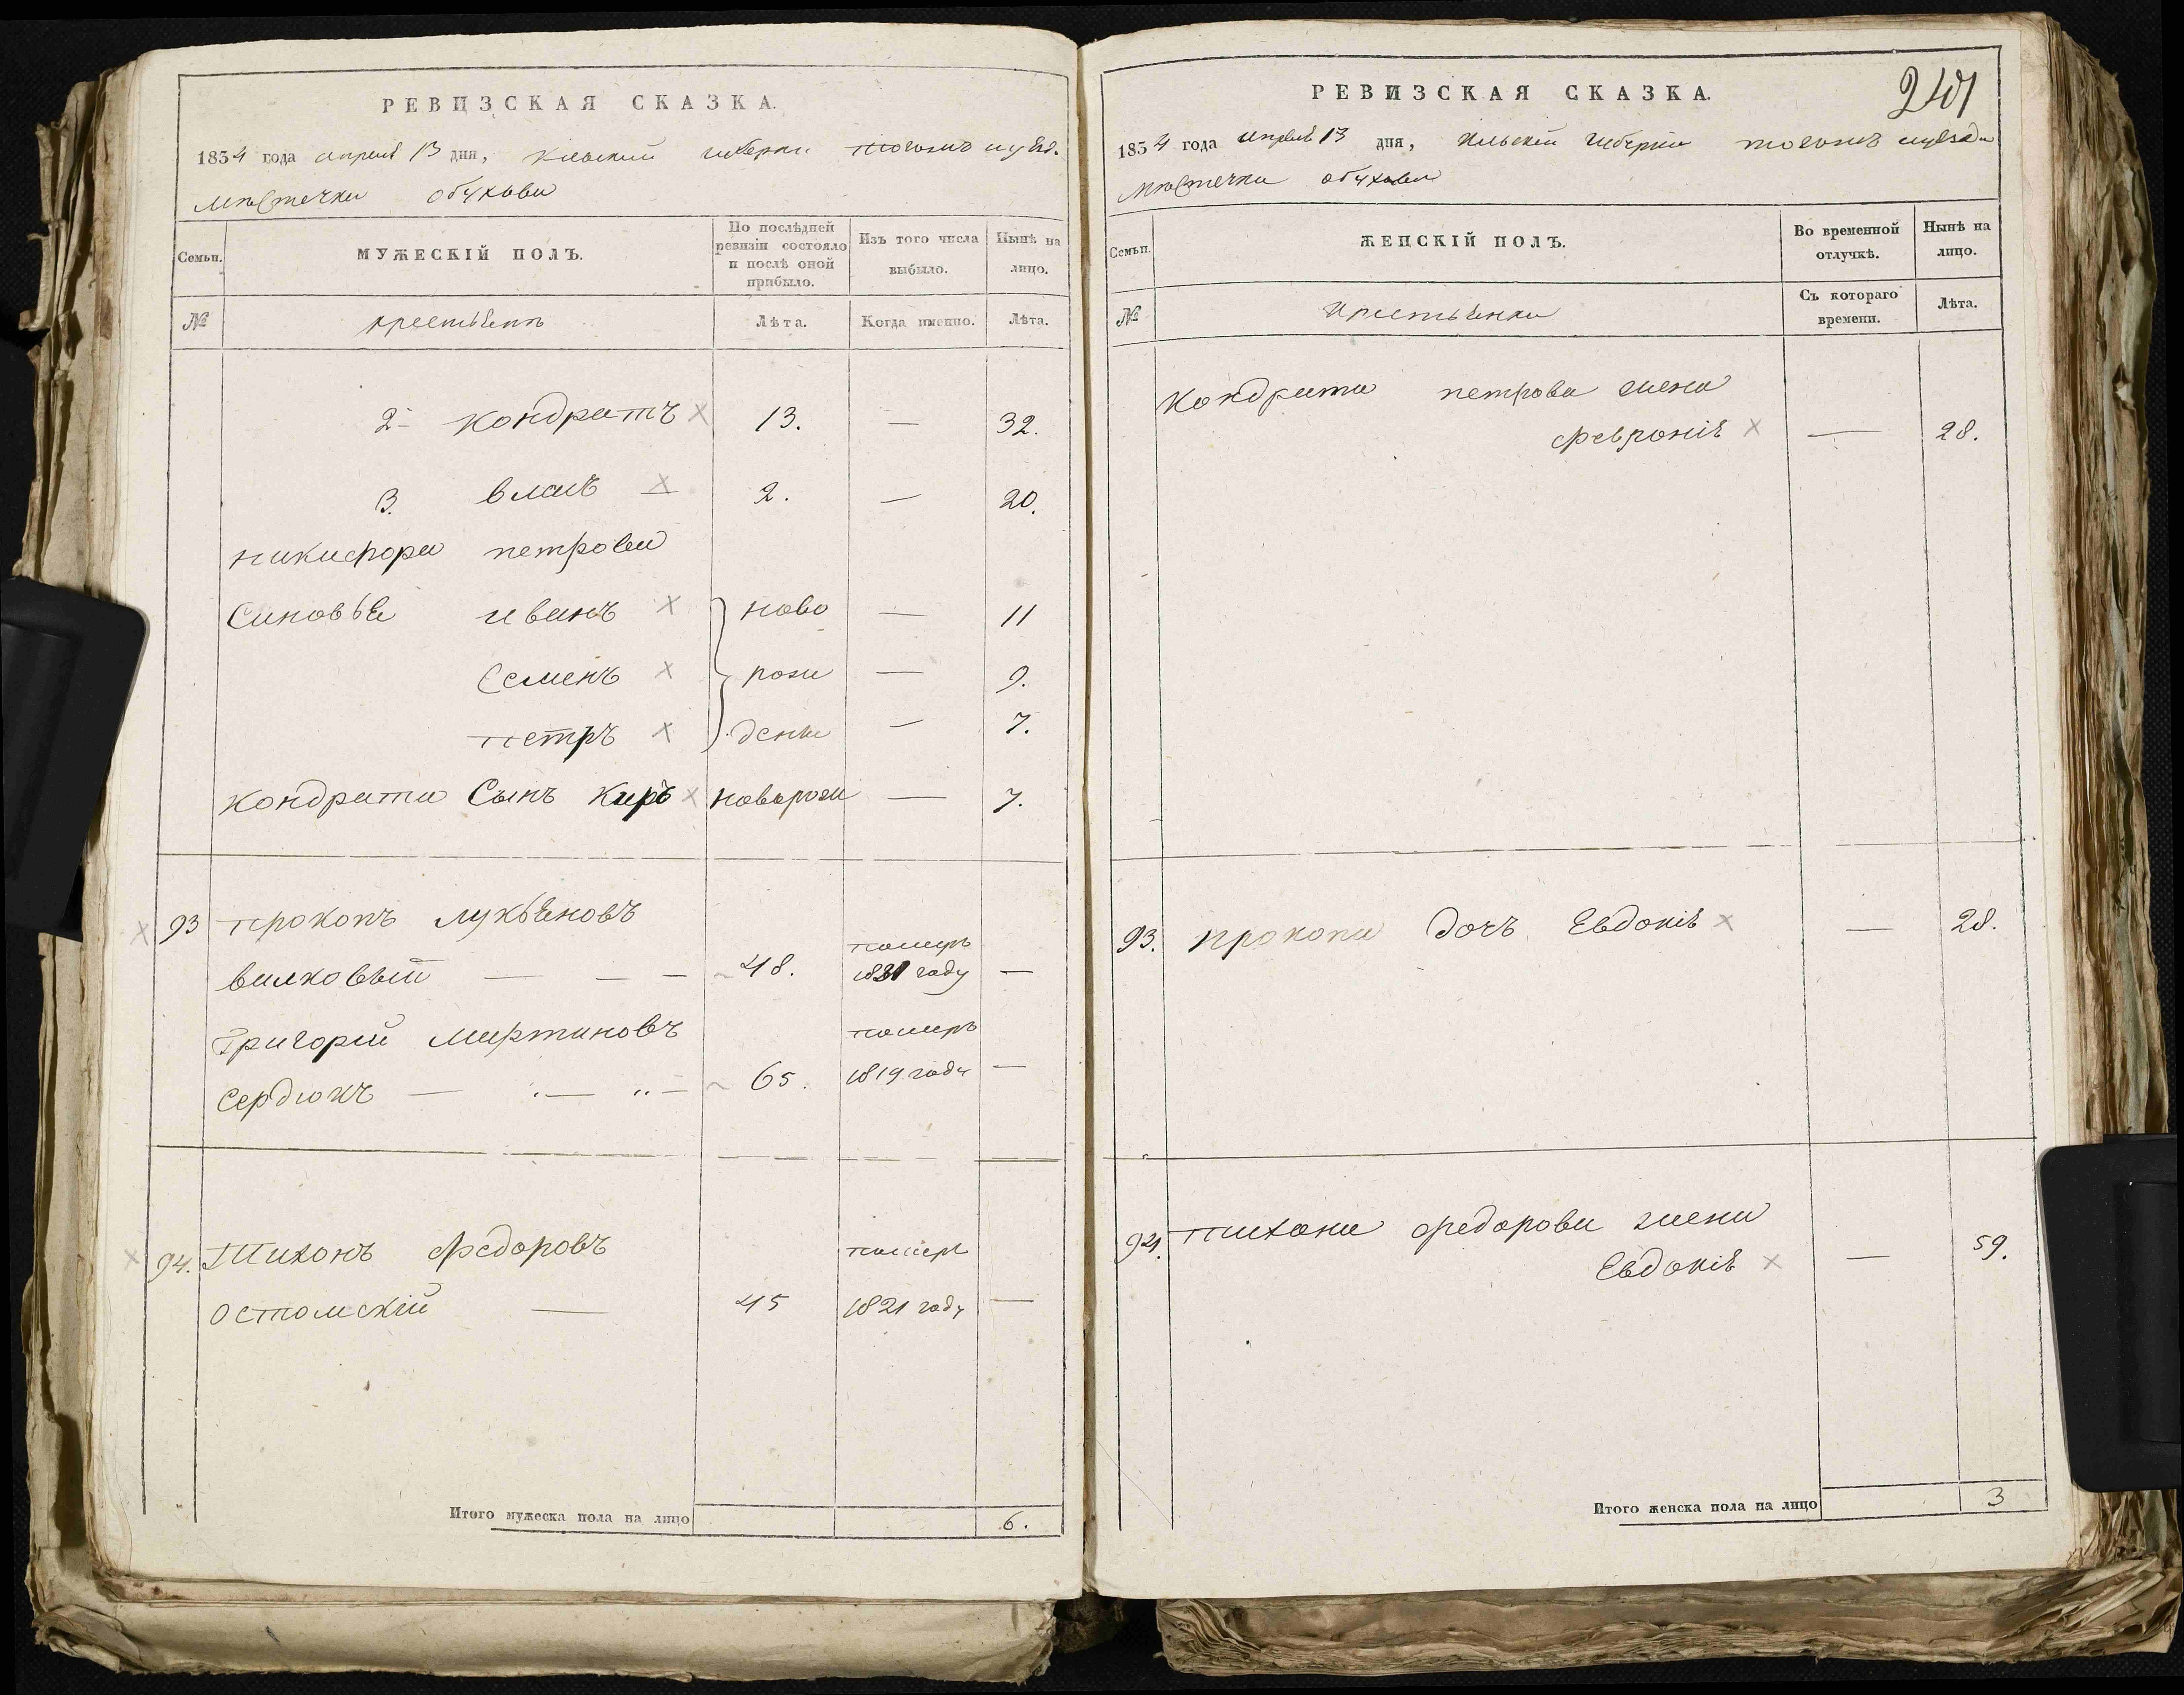 РЕВИЗСКАЯ СКАЗКА.
1834 года апреля 13 дня, Киевской губернии тогожъ уезд.
Местечка Обухова
Семьи.
МУЖЕСКІЙ ПОЛЪ.
По послѣдней ревизіи состояло и послѣ оной прибыло.
Изъ того числа выбыло.
Нынѣ на лицо.
№
Крестьянъ
Лѣта.
Когда именно.
Лѣта.
2- Кондратъ × 13. — 32.
3. Власъ × 2. — 20.
Никифора Петрова
Синовья Иванъ × ново — 11
Семенъ × рож — 9.
Петръ × дены — 7.
Кондрата Сынъ Киръ × новорож — 7.
× 93 Прокопъ Лукьяновъ
померъ
Вилковый — — — 48. 1821 году —
Григорій Мартиновъ померъ
Сердюкъ — — — 65. 1819 году —
× 94. Тихонъ Федоровъ померъ
Остомскій — 45 1821 году —
Итого мужеска пола на лицо 6.
РЕВИЗСКАЯ СКАЗКА.
1834 года апреля 13 дня, Киевской губернии тогожъ уезда
Местечка Обухова
Семьи.
ЖЕНСКІЙ ПОЛЪ.
Во временной отлучкѣ.
Нынѣ на лицо.
№
Крестьянки
Съ котораго времени.
Лѣта.
Кондрата Петрова жена
Февронія × — 28.
93. Прокопа дочъ Евдокія × — 28.
94. Тихона Федорова жена
Евдокія × — 59.
Итого женска пола на лицо 3